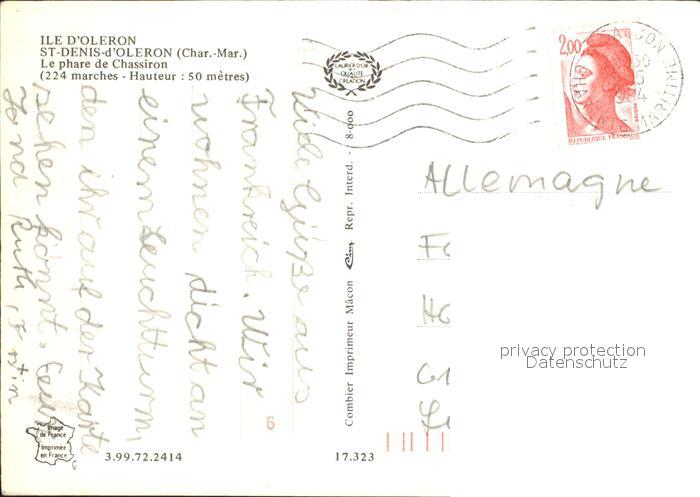 ILE D'OLERON
ST-DENIS-d'OLERON (Char.-Mar.)
Le phare de Chassiron
(224 marches - Hauteur : 50 mètres)
LAURIER D'OR
DE LA
QUALITÉ
CRÉATION
2,00
REPUBLIQUE FRANÇAISE
MARITIME
Viele Grüße aus
Frankreich. Wir
wohnen dicht an
einem Leuchtturm,
den ihr auf der Karte
sehen könnt. Eure
Ruth
Combier Imprimeur Mâcon Cim Repr. Interd. - 8-000
Allemagne
privacy protection
Datenschutz
6
Image
de France
Imprimée
en France
3.99.72.2414
17.323